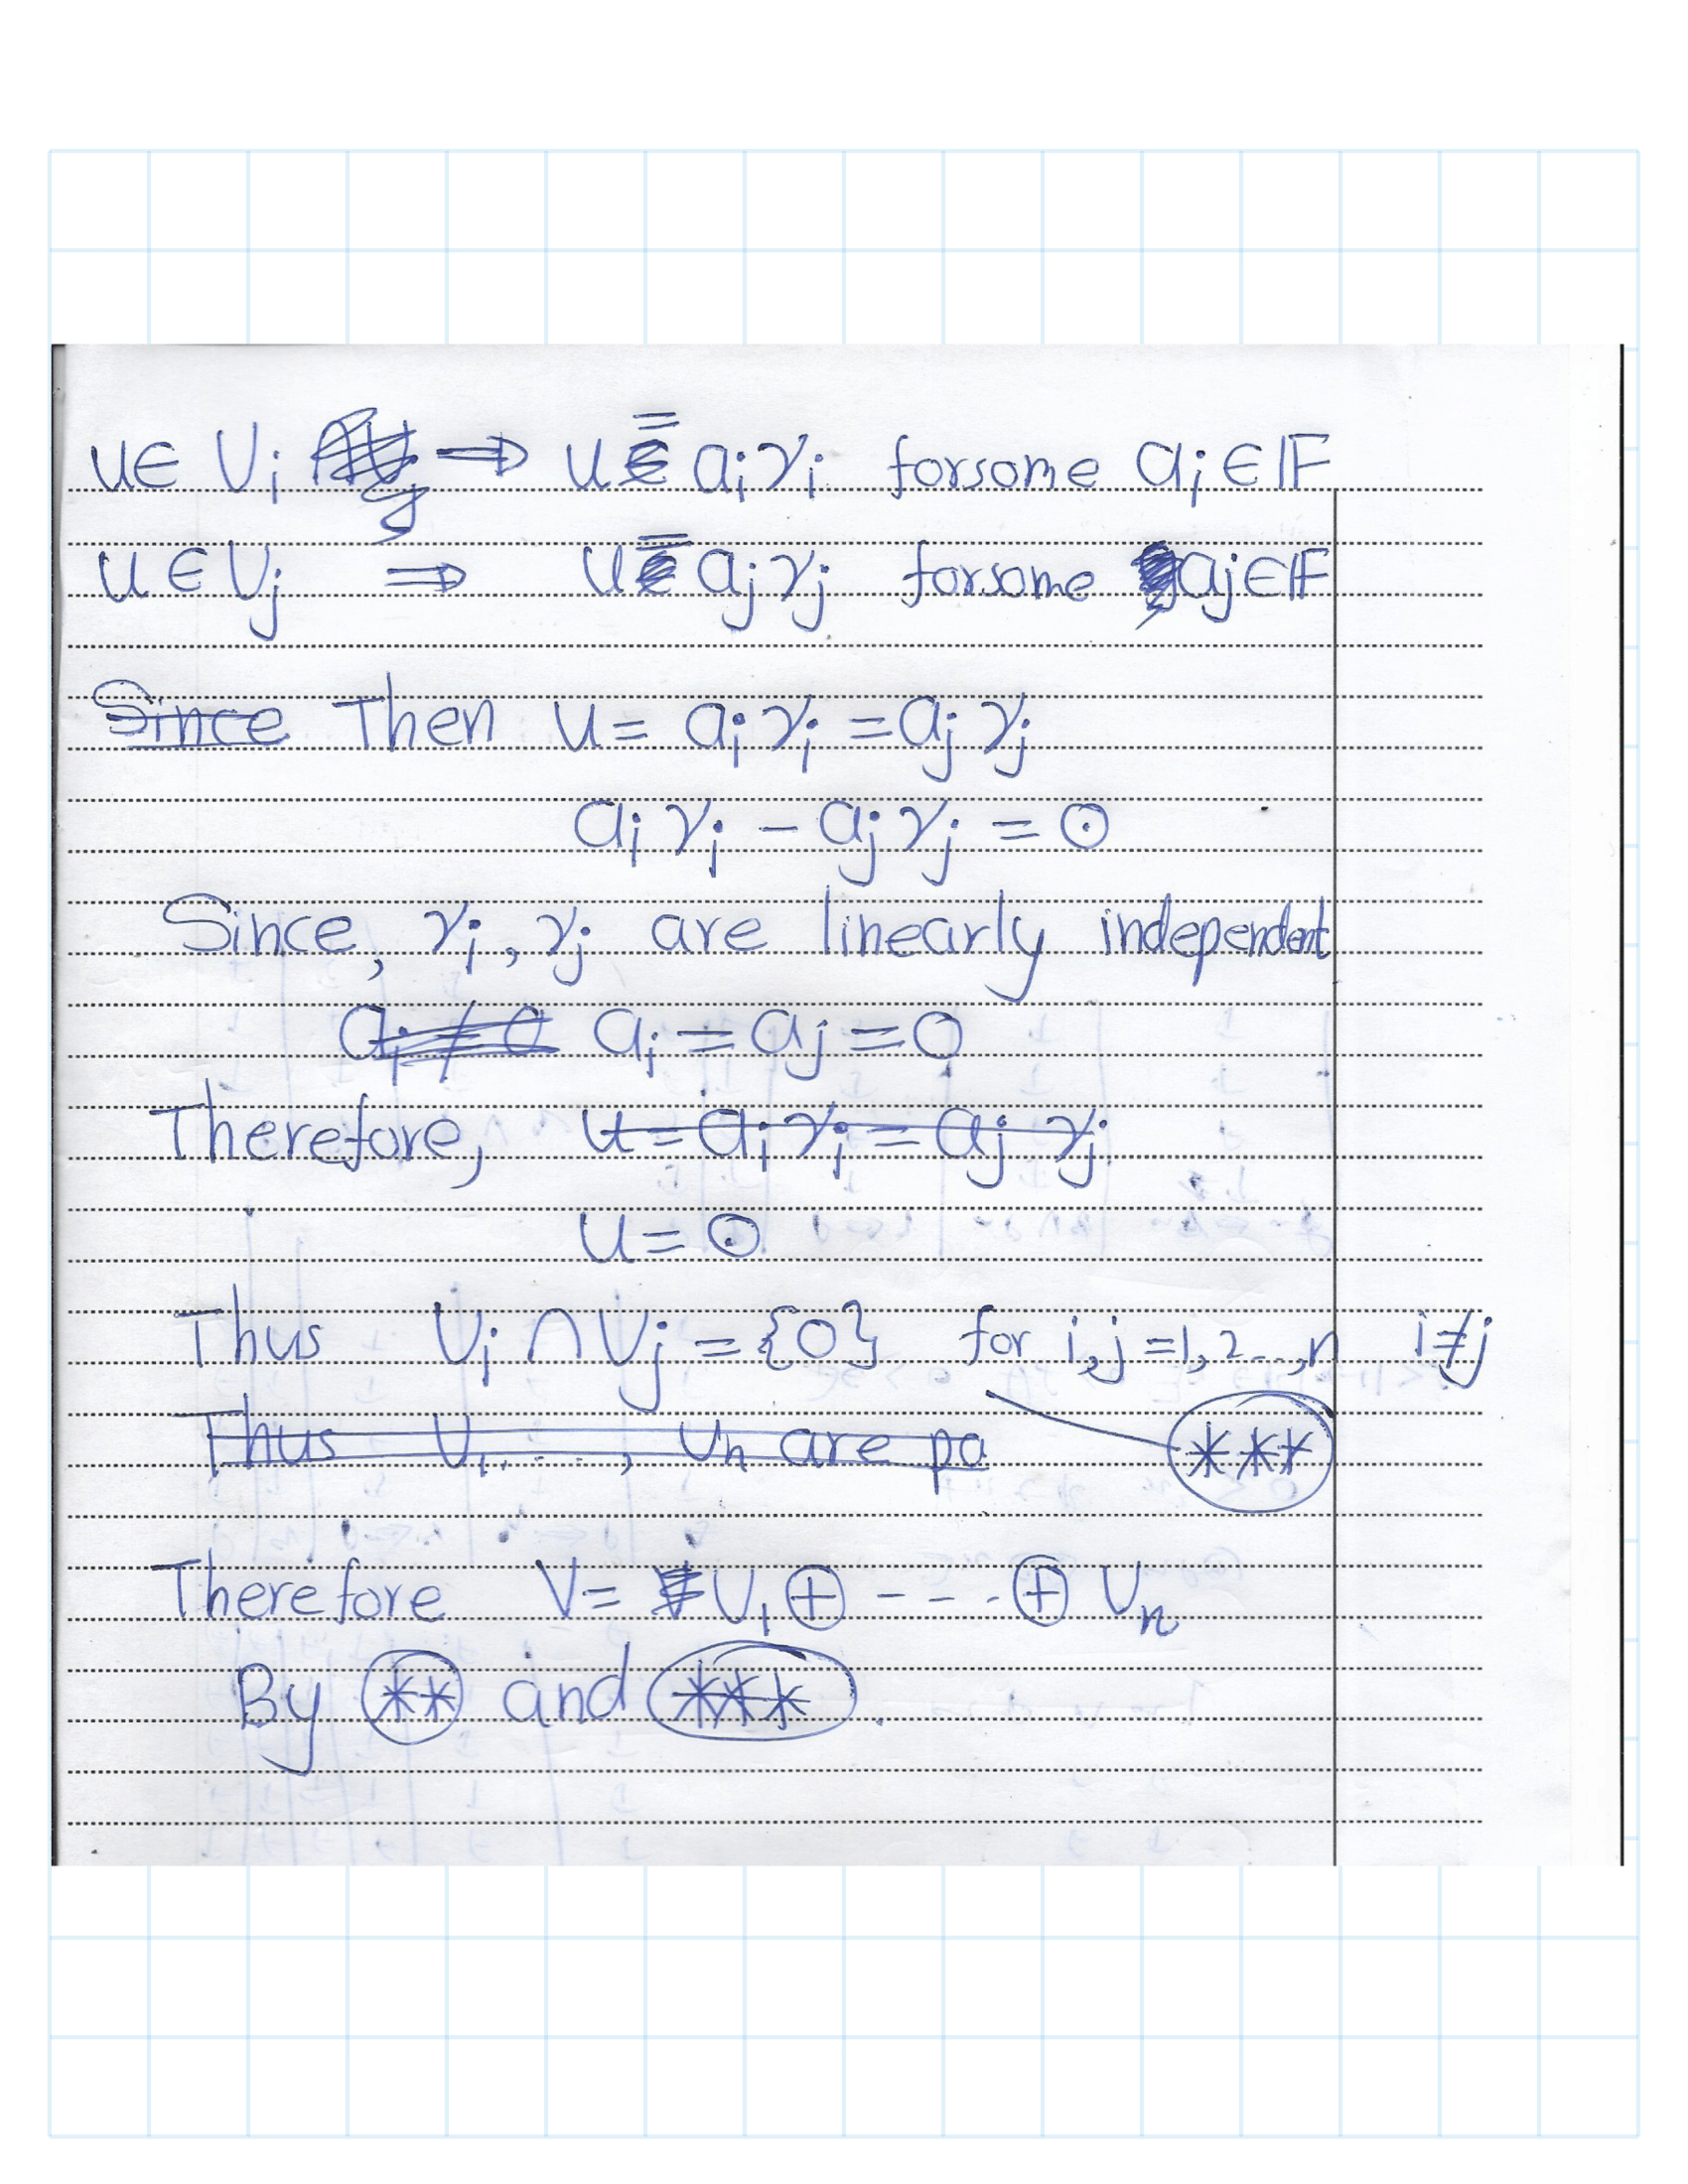 u ∈ U_i ⟹ u = a_i v_i forsome a_i ∈ 𝔽
u ∈ U_j ⟹ u = a_j v_j forsome a_j ∈ 𝔽
Since Then u = a_i v_i = a_j v_j
a_i v_i − a_j v_j = 0
Since, v_i, v_j are linearly independent
a_i ≠ 0 a_i = a_j = 0
Therefore, u = a_i v_i = a_j v_j
u = 0
Thus U_i ∩ U_j = {0} for i,j = 1,2...,n i≠j
Thus U_1 ..., U_n are pa ***
Therefore V = U_1 ⊕ - - - . ⊕ U_n
By ** and ***.